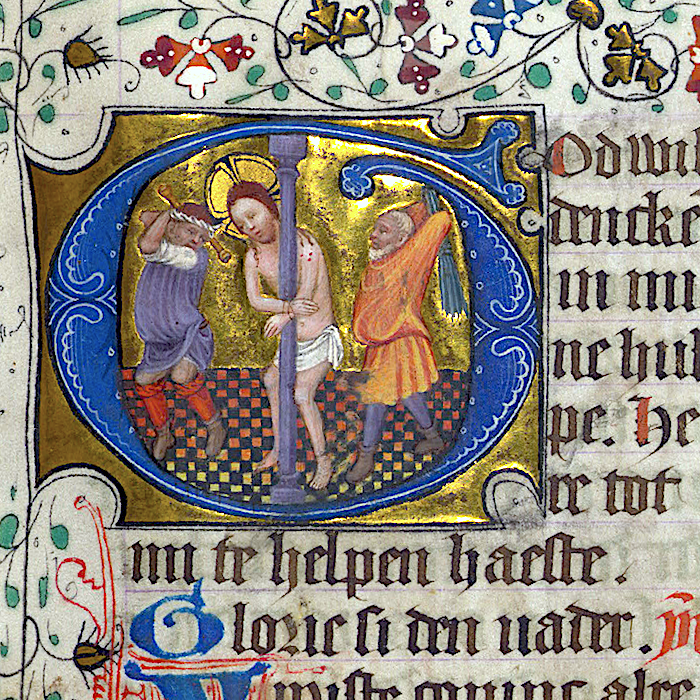 God wil
dencke
in mi
ne hul
pe. He
re tot
mi te helpen haeste.
Glorie si den uader.